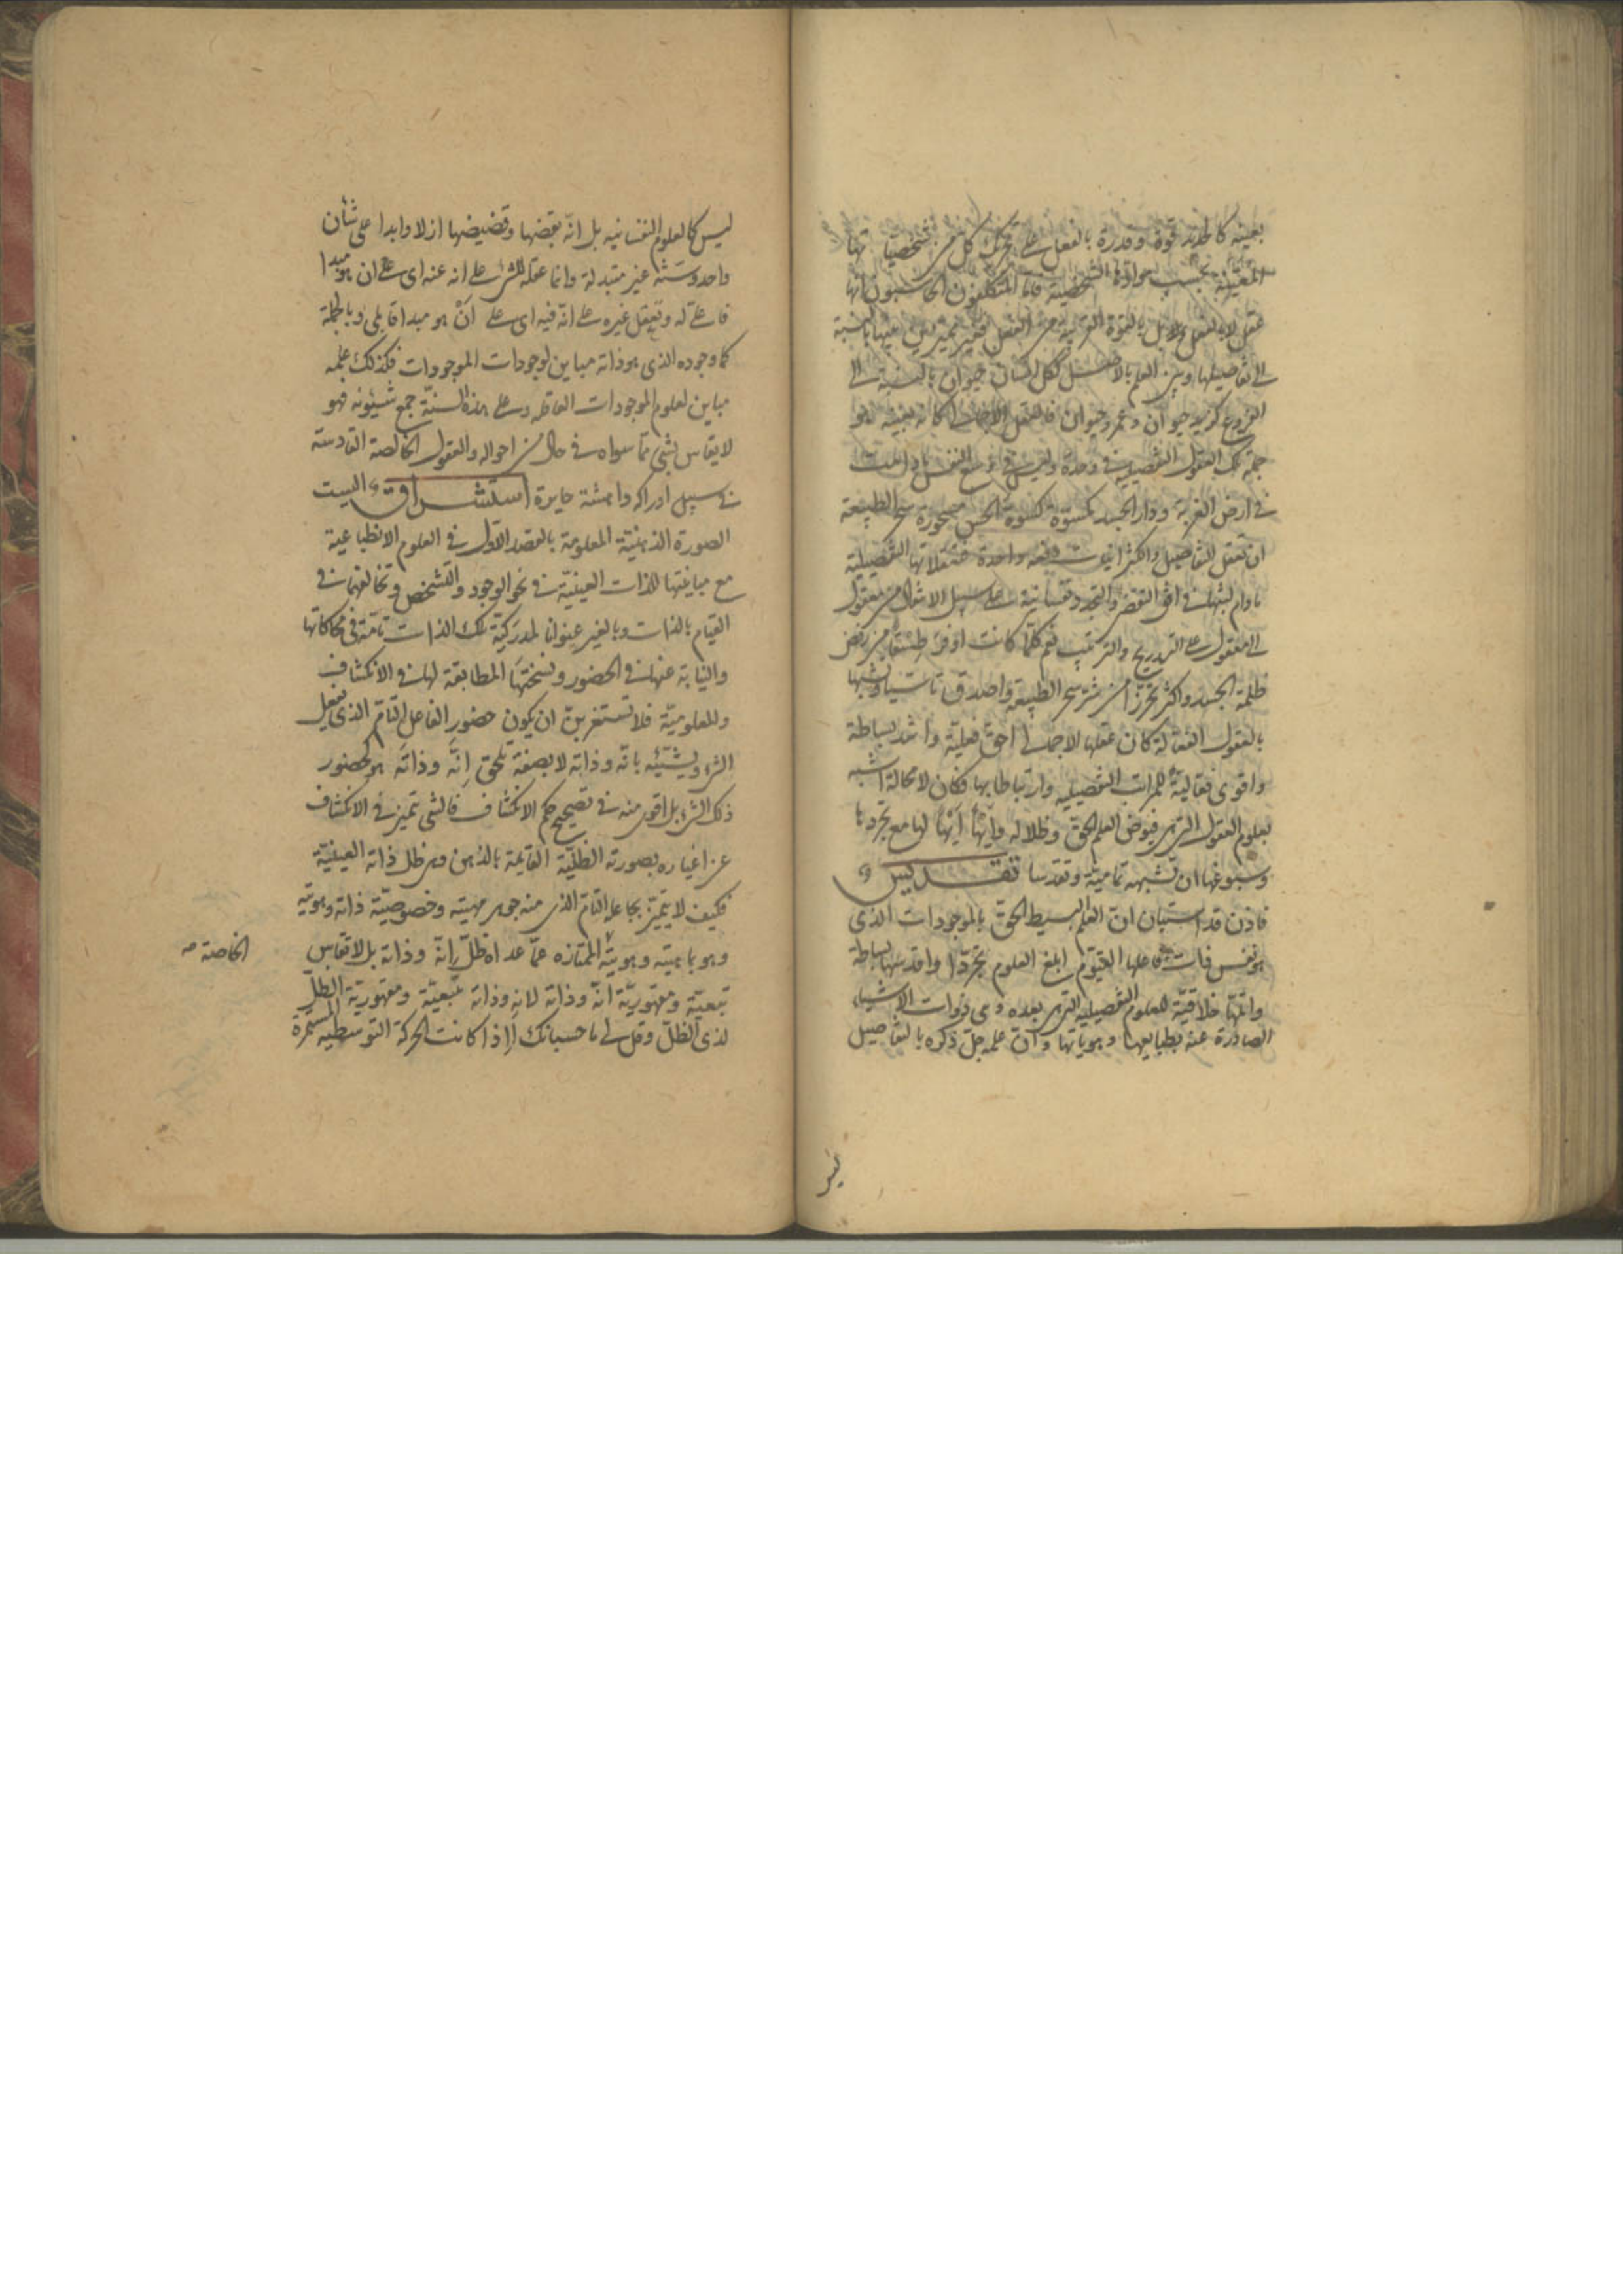 بعينه كالحديد قوة وقدرة بالفعل على تحريك كل من شخصيّاتها
المعيّنة بحسب موادّها الشخصية فاما المتكلفون الحاسبون انها
عقل لا بالفعل بل بالقوة القريبة من الفعل فغير مميزين بينها بالنسبة
الى تفاصيلها وبين العلم بالاصل ككل انسان حيوان بالنسبة الى
الفروع كزيد حيوان وعمرو حيوان فالعقل الاجمالى كانه بعينه هو
جملة تلك العقول التفصيلية فى وحدة وليس فى وسع النفس ما دامت
فى ارض الغربة ودار الجسد مكسوّة كسوة الحس مسحورة سحر الطبيعة
ان تعقل التفاصيل والكثرات دفعة واحدة فتعقلاتها التفصيلية
مادام لبثها فى افق التقضى والتجدد نفسانية على سبيل الانتقال من معقول
الى معقول على التدريج والترتيب نعم كلما كانت اوفر قسطا من رفض
ظلمة الجسد واكثر تحرزا من شر سحر الطبيعة واصدق تأسيا وتشبها
بالعقول الفعالة كان عقلها الاجمالى احق فعلية واشد بساطة
واقوى فعالية للمراتب التفصيلية وارتباطا بها فكان لا محالة اشبه
بعلوم العقول التى هى فيوض العلم الحق وظلاله وانّها لها مع تجردها
وسبوغها ان تشبهه تمامية وتقدسا تقديس
فاذن قد استبان ان العلم البسيط الحق بالموجودات الذى
هو نفس ذات جاعلها القيوم ابلغ العلوم تجردا واقدسها بساطة
واتمّها خلاقيّة للعلوم التفصيلية التى هى بعده وهى ذوات الاشياء
الصادرة عنه بطبايعها وهوياتها وان علمه جل ذكره بالتفاصيل
ليس
ليس كالعلوم النفسانيه بل انّه بقضها وقضيضها ازلا وابدا على شأن
واحد وسنّة غير متبدلة وانما عقله للشىء على انه عنه اى على ان هو مبدأ
فاعلى له وتعقل غيره على انّه فيه اى على انّ هو مبدأ قابلى وبالجملة
كما وجوده الذى هو ذاته مباين لوجودات الموجودات فكذلك علمه
مباين لعلوم الموجودات العاقلة وعلى هذه السنّة جمع شئونه فهو
لا يقاس بشىء مما سواه فى حال من احواله والعقول الخالصة القادسة
فى سبيل ادراكه داهشة حايرة استشراق اليست
الصورة الذهنيّة المعلومة بالقصد الاول فى العلوم الانطباعية
مع مباينتها للذات العينيّة فى نحو الوجود والتشخص وتخالفهما فى
القيام بالذات وبالغير عنوانا لمدركيّة تلك الذات تامّة فى محاكاتها
والنيابة عنها فى الحضور ونسختها المطابقة لها فى الانكشاف
والمعلوميّة فلا تستغربنّ ان يكون حضور الفاعل التامّ الذى يفعل
الشىء ويشيّئه بانّه وذاته لا بصفة تلحق انّه وذاته هو حضور
ذلك الشىء بل اقوى منه فى تصحيح حكم الانكشاف فالشىء تميز فى الانكشاف
عن اغياره بصورته الظليّة القايمة بالذهن وهى ظل ذاته العينيّة
فكيف لا يتميّز بجاعله التامّ الذى منه جوهر مهيته وخصوصيّة ذاته وهويّته
وهو بماهيته وهويّته الممتازه عمّا عداه ظلّ انّه وذاته بل لا تقاس
الخاصة صح
تبعيّة ومقهوريّة انّه وذاته لانه وذاته بتبعيّة ومقهوريّة الظلّ
لذى الظلّ وقل لى ما حسبانك اذا كانت الحركة التوسطيه المستمرة